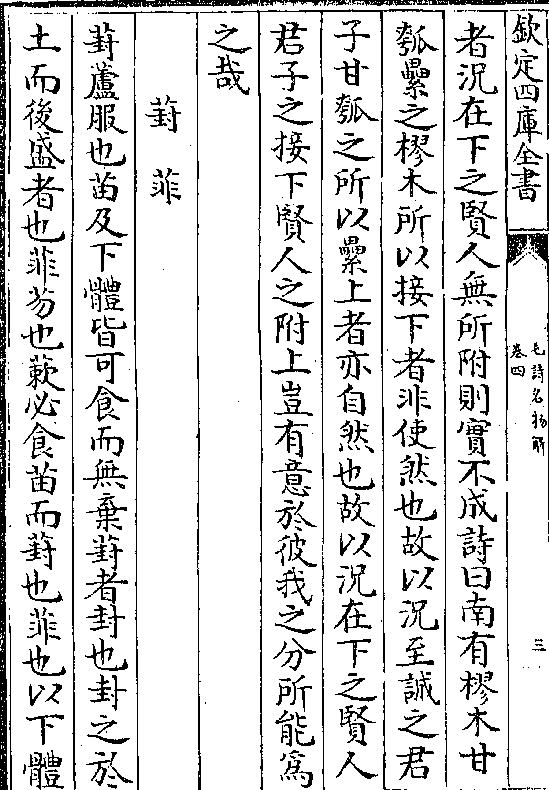 欽定四庫全書
毛詩名物解
卷四
三
者況在下之賢人無所附則實不成詩曰南有樛木甘
瓠纍之樛木所以接下者非使然也故以況至誠之君
子甘瓠之所以纍上者亦自然也故以況在下之賢人
君子之接下賢人之附上豈有意於彼我之分所能為
之哉
葑菲
葑蘆服也苗及下體皆可食而無棄葑者封也封之於
土而後盛者也菲芴也蔌必食苗而葑也菲也以下體